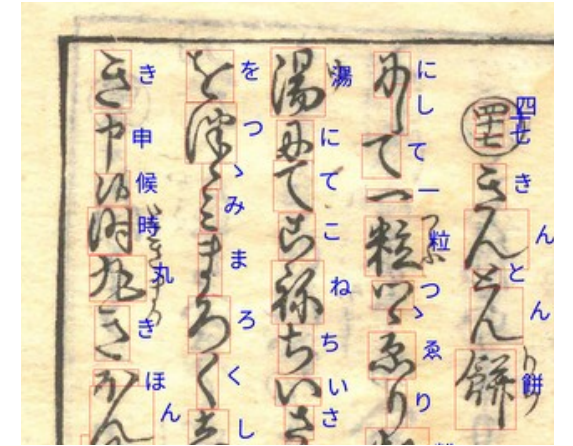 四十七きんとん餅
にして一粒つゝゑり
湯にてこねちいさ
をつゝみまろくし
き申候時丸きほん